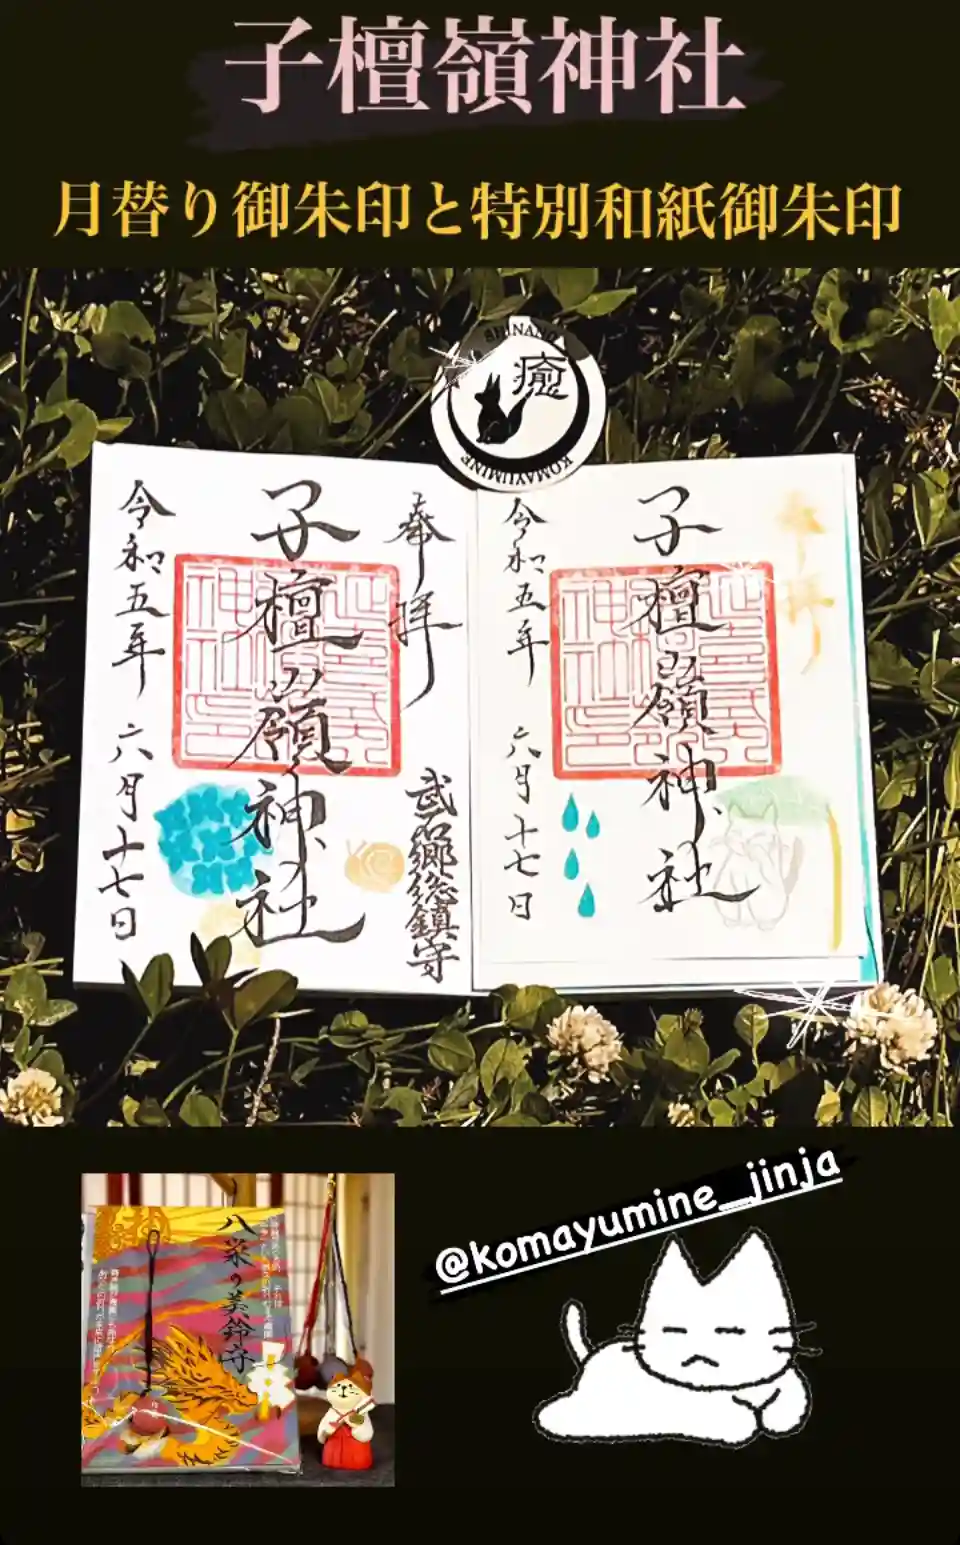 子檀嶺神社
月替り御朱印と特別和紙御朱印
SHINANO
癒
KOMAYUMINE
奉拝
武石郷総鎮守
子檀嶺神社
令和五年 六月十七日
奉拝
子檀嶺神社
令和五年 六月十七日
@komayumine_jinja
八栄の美鈴守